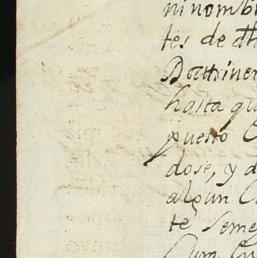 ni nomb
tes de dh
Dottriner
hasta qu
puesto C
dose, y d
algun C
te seme